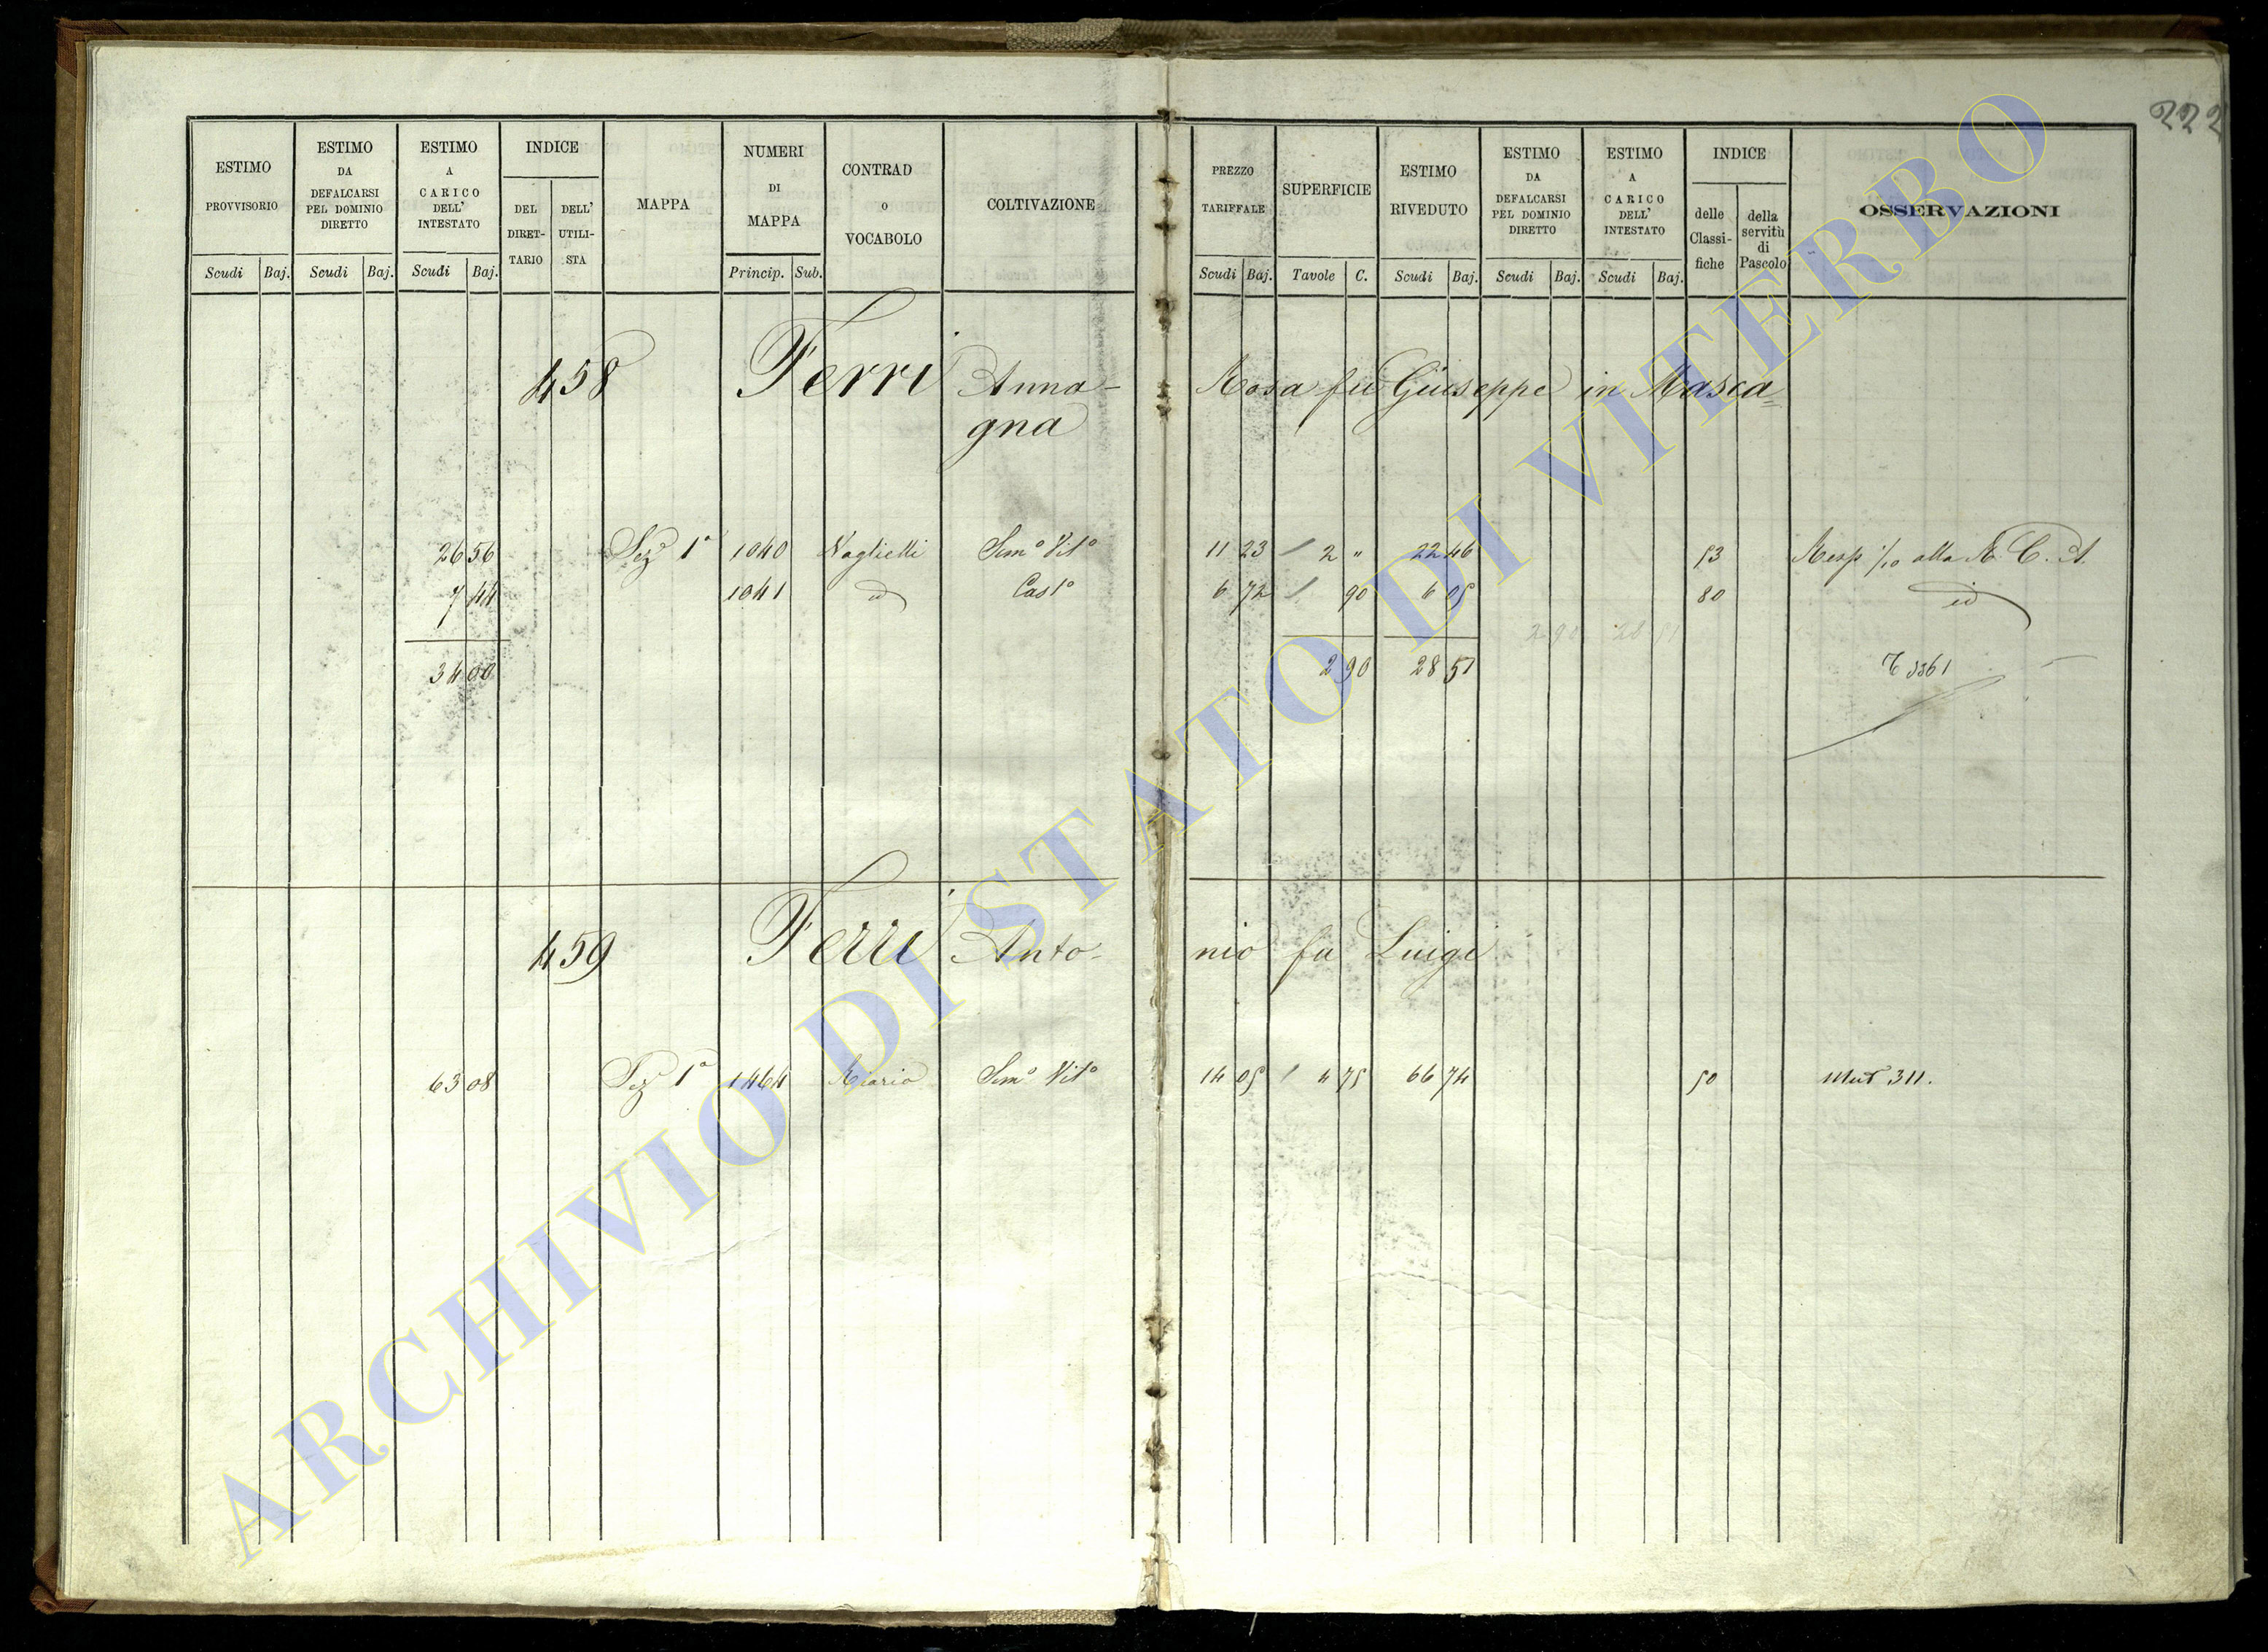 222
ESTIMO PROVVISORIO
Scudi Baj.
ESTIMO DA DEFALCARSI PEL DOMINIO DIRETTO
Scudi Baj.
ESTIMO A CARICO DELL' INTESTATO
Scudi Baj.
INDICE
DEL DIRET-TARIO
DELL' UTILI-STA
MAPPA
NUMERI DI MAPPA
Princip. Sub.
CONTRAD O VOCABOLO
COLTIVAZIONE
PREZZO TARIFFALE
Scudi Baj.
SUPERFICIE
Tavole C.
ESTIMO RIVEDUTO
Scudi Baj.
ESTIMO DA DEFALCARSI PEL DOMINIO DIRETTO
Scudi Baj.
ESTIMO A CARICO DELL' INTESTATO
Scudi Baj.
INDICE
delle Classi-fiche
della servitù di Pascolo
OSSERVAZIONI
458 Ferri Anna- Rosa fu Giuseppe in Masca=
gna
26 56 Sez 1ª 1040 Naglielli Semo Vito 11 23 / 2 " 22 46 53 Resp 1/10 alla R. C. A.
7 44 1041 id Casto 6 72 / 90 6 05 80 id
2 90 28 51
34 00 2 90 28 51 T 3361
459 Ferri Anto- nio fu Luigi
63 08 Sez 1ª 1464 Riario Semo Vito 14 05 / 4 75 66 74 50 Mut 311.
ARCHIVIO DI STATO DI VITERBO